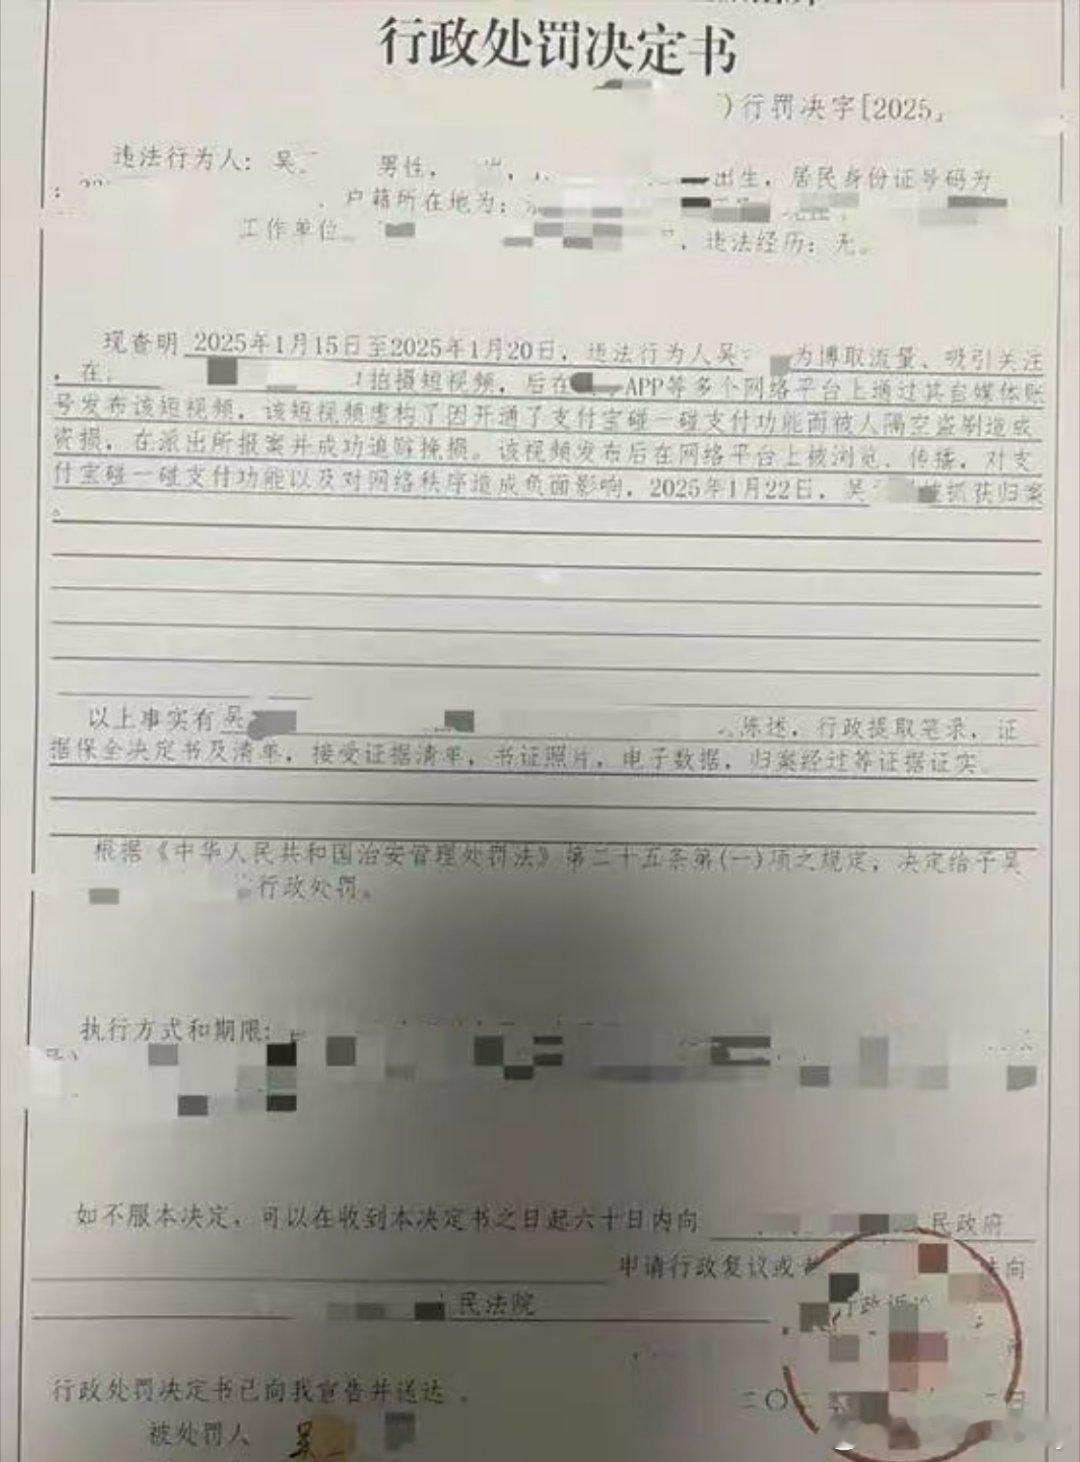 行政处罚决定书
)行罚决字[2025」
违法行为人: 吴
男性,
出生, 居民身份证号码为
户籍所在地为:
工作单位
, 违法经历: 无。
现查明 2025年1月15日至2025年1月20日, 违法行为人吴 为博取流量、吸引关注
, 在 拍摄短视频, 后在 APP等多个网络平台上通过其自媒体账
号发布该短视频, 该短视频虚构了因开通了支付宝碰一碰支付功能而被人隔空盗刷造成
资损, 在派出所报案并成功追赃挽损。该视频发布后在网络平台上被浏览、传播, 对支
付宝碰一碰支付功能以及对网络秩序造成负面影响, 2025年1月22日, 吴 被抓获归案
。
以上事实有吴 陈述, 行政提取笔录, 证
据保全决定书及清单, 接受证据清单, 书证照片, 电子数据, 归案经过等证据证实。
根据《中华人民共和国治安管理处罚法》第二十五条第(一)项之规定, 决定给予吴
行政处罚。
执行方式和期限:
如不服本决定, 可以在收到本决定书之日起六十日内向 民政府
申请行政复议或者 向
民法院 行政诉讼
行政处罚决定书已向我宣告并送达。
二〇 日
被处罚人 吴